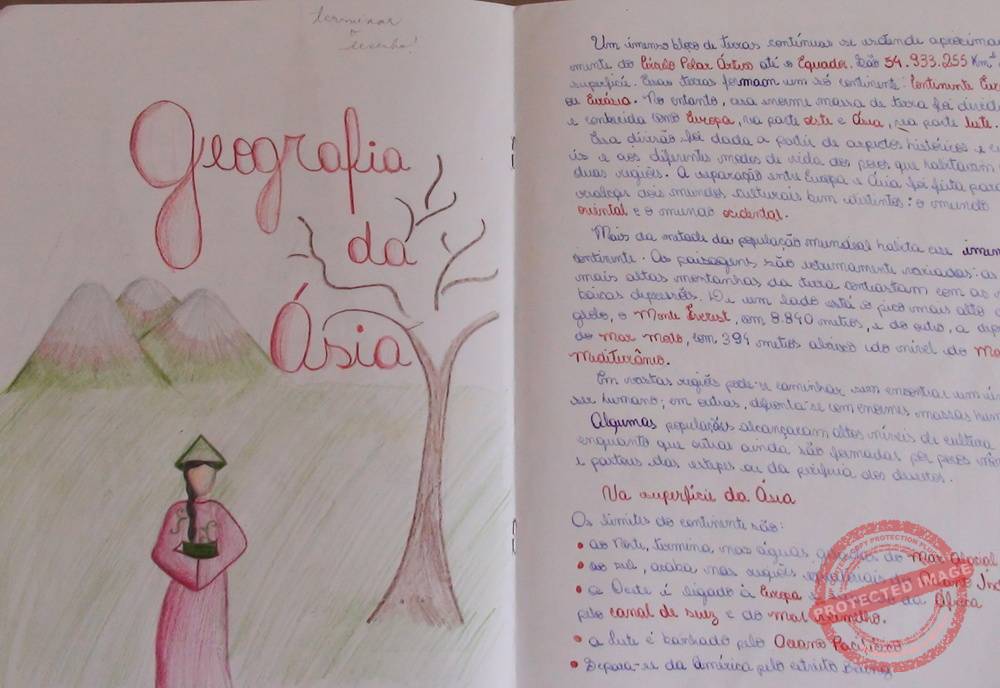 terminar
o
desenho!
Geografia
da
Ásia
Um imenso bloco de terras contínuas se estende aproxima
mente do Círculo Polar Ártico até o Equador. São 54.933.255 Km²
superfície. Essas terras formam um só continente: Continente Eur
ou Eurásia. No entanto, essa enorme massa de terra foi dividi
e conhecida como Europa, na parte oeste e Ásia, na parte leste.
Essa divisão foi dada a partir de aspectos históricos e
is e aos diferentes modos de vida dos povos que habitavam
duas regiões. A separação entre Europa e Ásia foi feita para
realçar dois mundos culturais bem distintos: o mundo
oriental e o mundo ocidental.
Mais da metade da população mundial habita esse imen
continente. As paisagens são extremamente variadas: as
mais altas montanhas da terra contrastam com as
baixas depressões. De um lado está o pico mais alto
globo, o Monte Everest, com 8.840 metros, e do outro, a dep
do Mar Moto, com 394 metros abaixo do nível do Ma
Mediterrâneo.
Em vastas regiões pode-se caminhar sem encontrar um
ser humano; em outras, depara-se com enormes massas hum
Algumas populações alcançaram altos níveis de cultura
enquanto que outras ainda são formadas por povos nôm
e pastores das estepes ou da periferia dos desertos.
Na superfície da Ásia
Os limites do continente são:
• ao Norte, termina, nas águas geladas do Mar Glacial
• ao sul, acaba nas regiões equatoriais Índ
• a Oeste é ligado à Europa e da África
pelo canal de suez e do Mar Vermelho.
• a leste é banhado pelo Oceano Pacífico
• Separa-se da América pelo estreito Bering
COPY PROTECTION PLUGIN
PROTECTED IMAGE